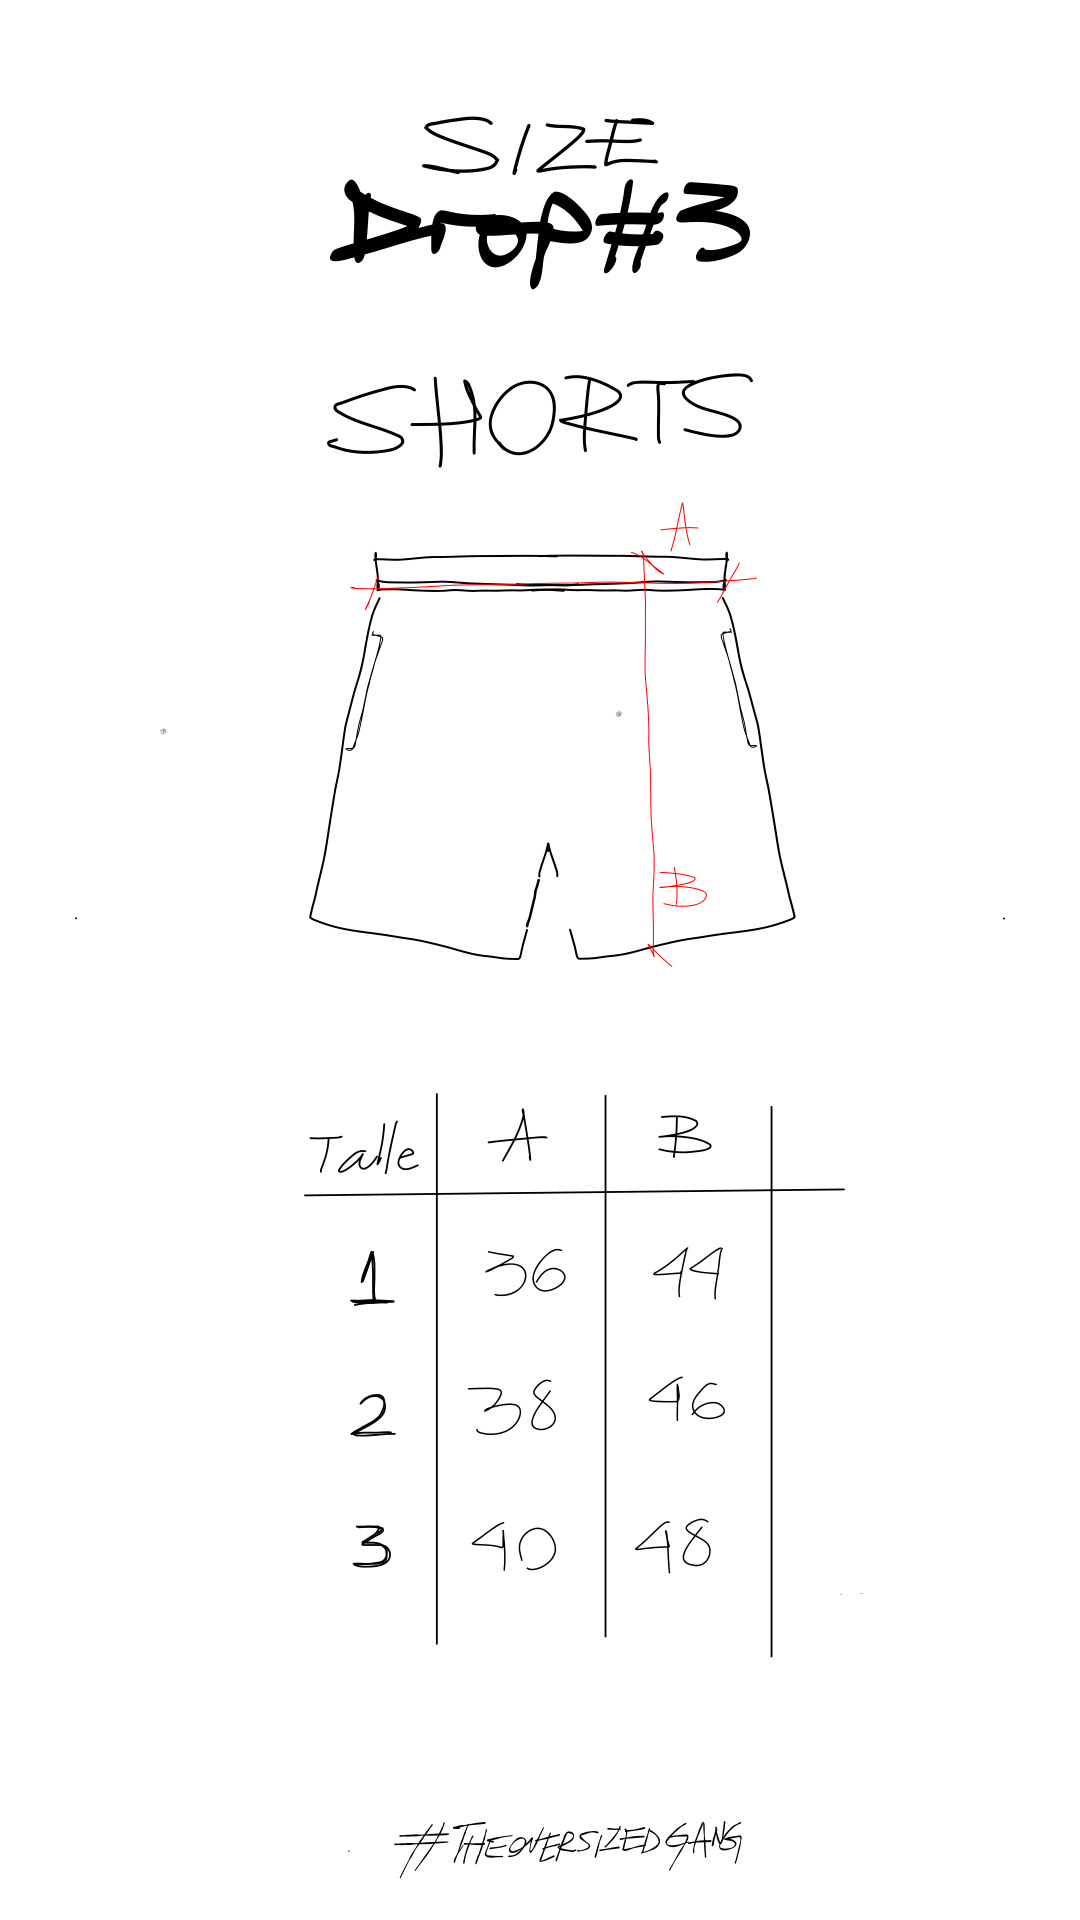 SIZE
Drop#3
SHORTS
A
B
Talle A B
1 36 44
2 38 46
3 40 48
#THEOVERSIZEDGANG